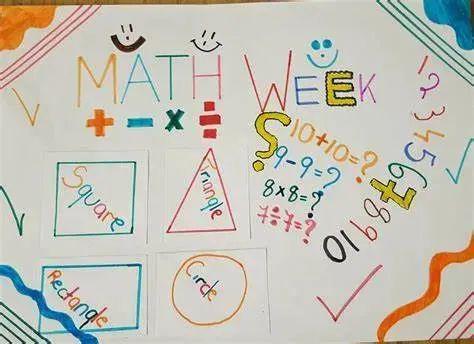 MATH WEEK
+ - x ÷
?
10+10=?
9-9=?
8x8=?
7÷7=?
Square
Triangle
Rectangle
Circle
1
2
3
4
5
6
7
8
9
10